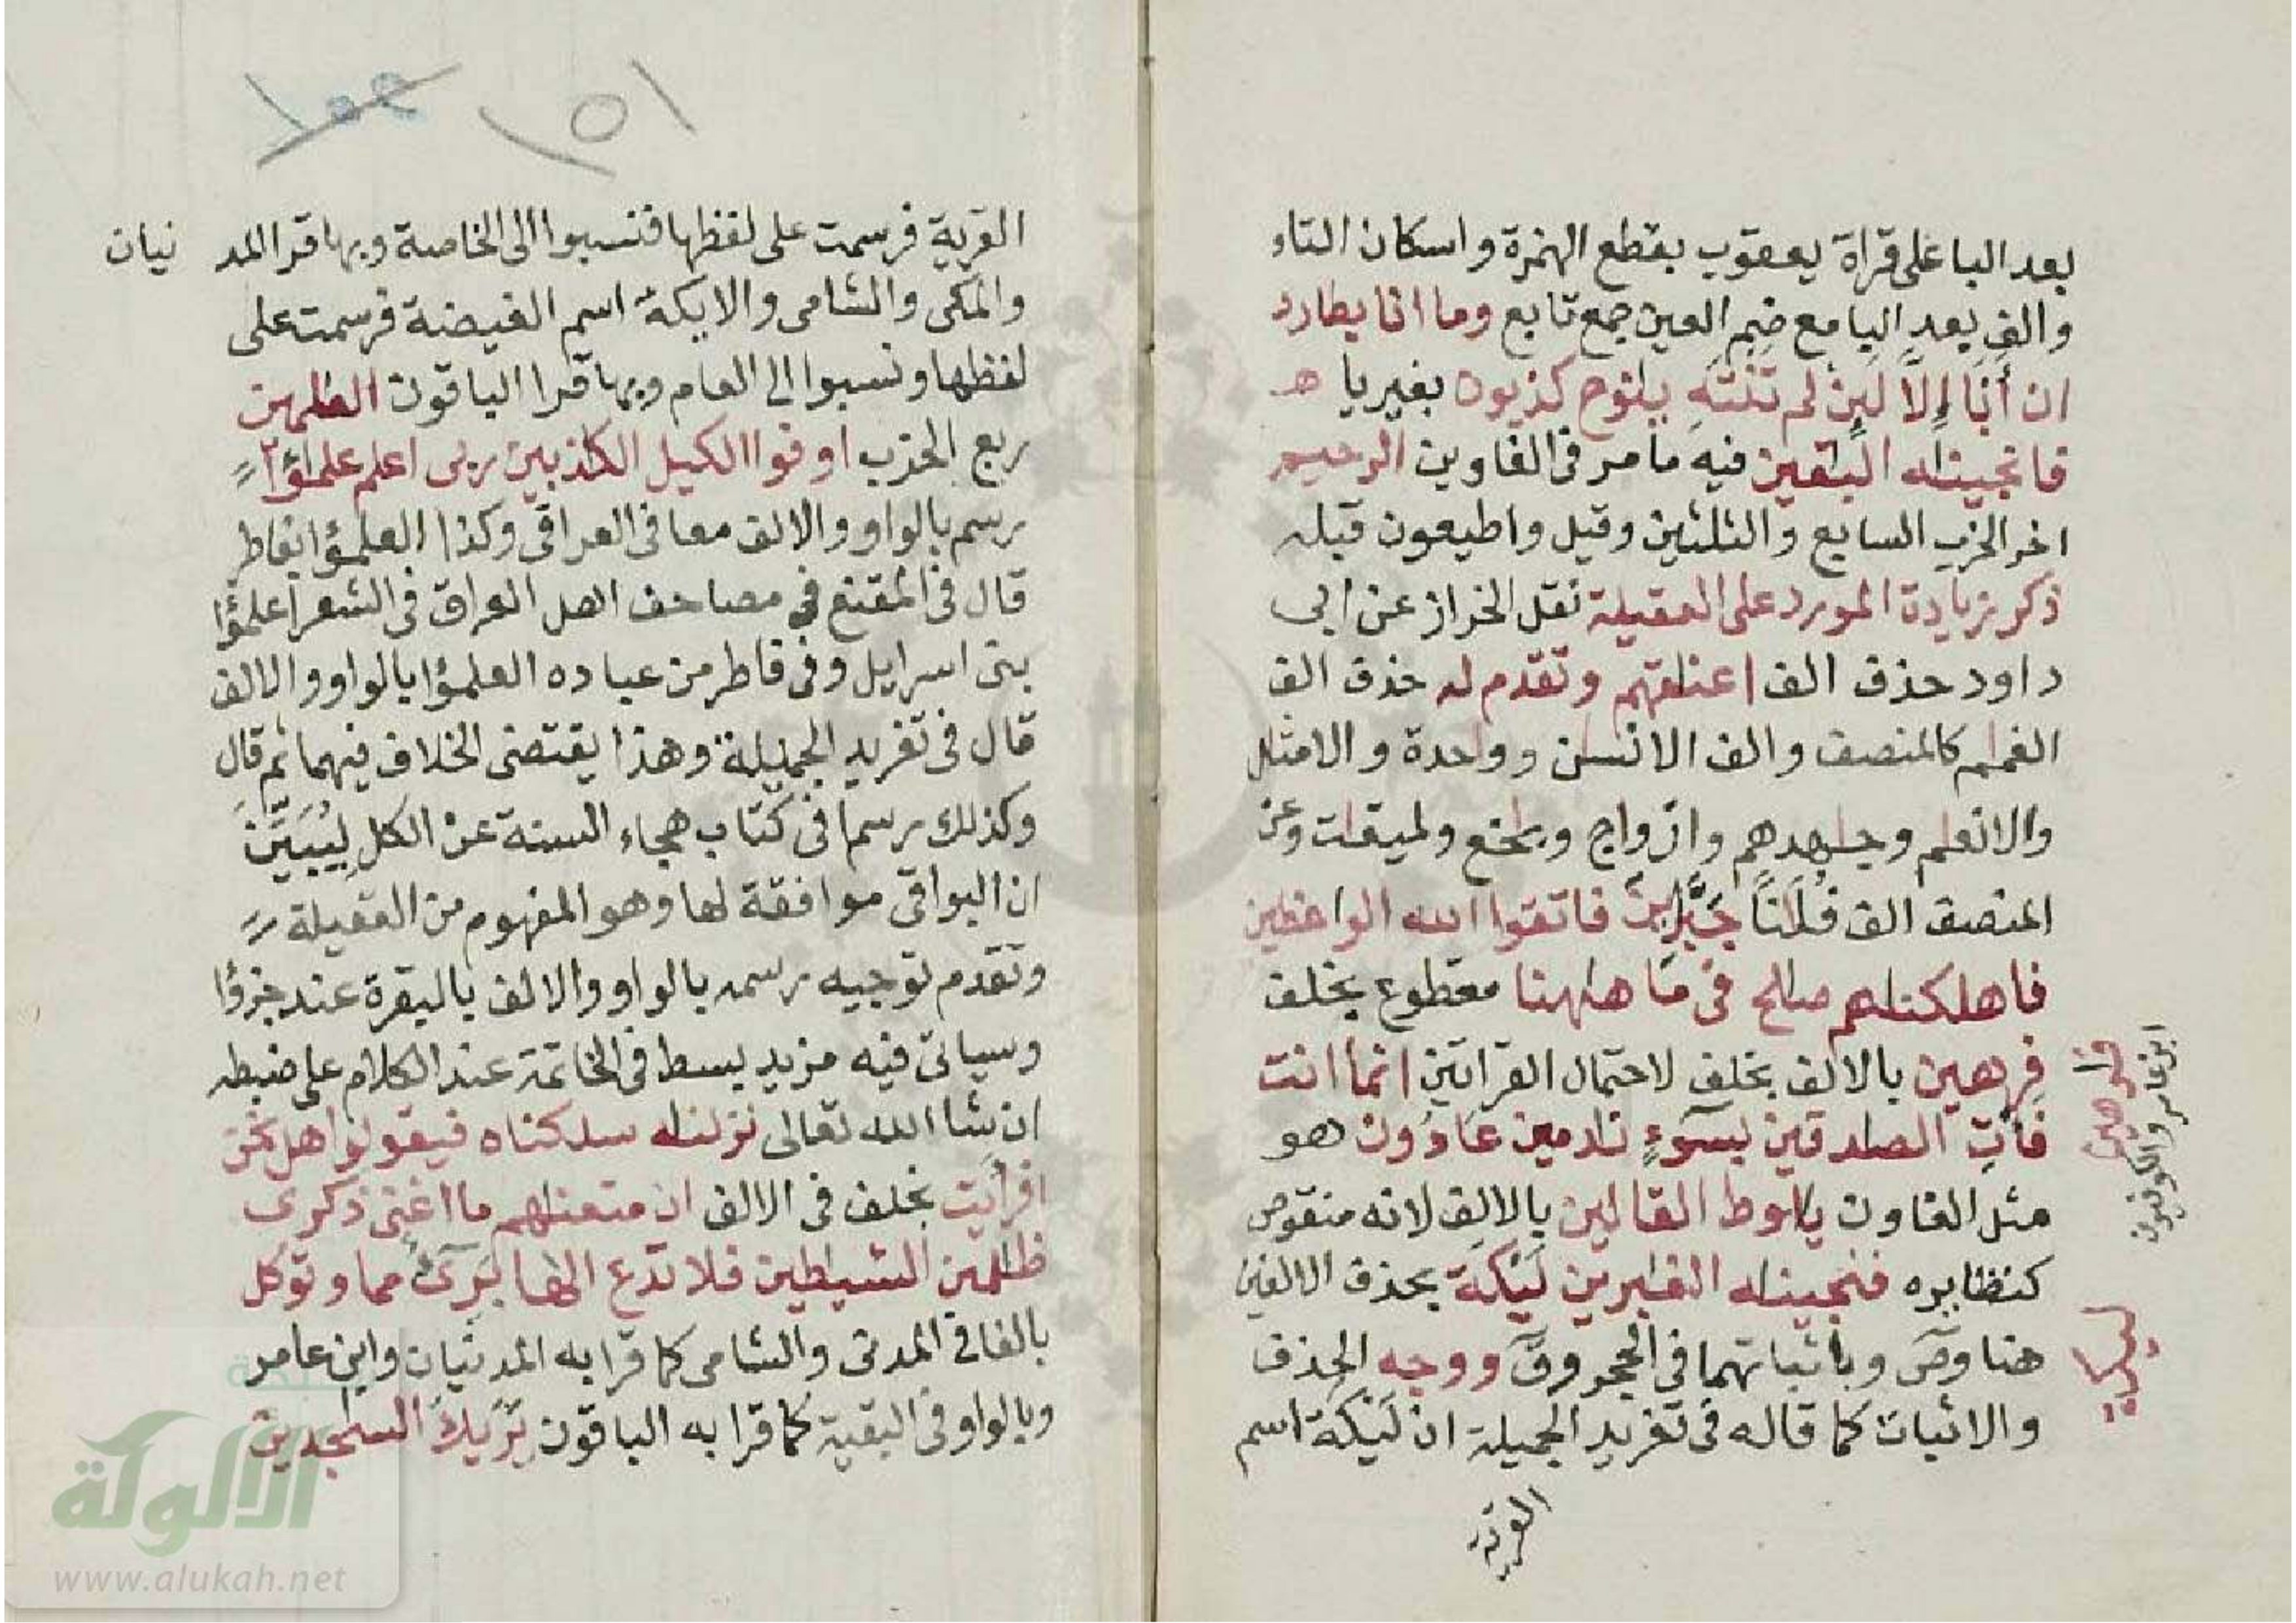 بعد البا على قراة يعقوب بقطع الهمزة واسكان التاء
والف بعد البا مع ضم العين جمع تابع وما انا بطارد
ان أَنَا إِلَّا لَئِن لم تَنْتَهِ يٰنوح كذبون بغير يا هـ
فانجينٰه البٰقين فيه ما مر فى الغاوين الرحيم
اخر الحزب السابع والثلثين وقيل واطيعون قبله
ذكر زيادة المورد على العقيلة نقل الخراز عن ابى
داود حذف الف اعنٰقهم وتقدم له حذف الف
الغمٰم كالمنصف والف الانسٰن وواحدة والامثٰل
والانعٰم وجٰهدهم وازواج وبٰخع ولميقٰت وعن
المنصف الف فُلَانًا جَبَّارِينَ فاتقوا الله الواعظين
فاهلكنٰهم صٰلح فى مَا هٰهنا مقطوع بخلف
فرهين بالالف بخلف لاحتمال القراتين انما انت
فأتِ الصٰدقين بسوٓءٍ نٰدمين عَادُون هو
مثل الغاون يٰلوط القالين بالالف لانه منقوص
كنظايره فنجينٰه الغٰبرين لَيْكَة بحذف الالفين
هنا وصٓ وباثباتهما فى الحجر وقٓ ووجه الحذف
والاثبات كما قاله فى تغريد الجميلة ان لَيْكَة اسم
القرية
فٰرهين
ابن عامر والكوفيون
ليكة
١٥١
القرية فرسمت على لفظها فنسبوا الى الخاصة وبها قرا المد نيان
والمكى والشامى والايكة اسم الغيضة فرسمت على
لفظها ونسبوا الى العام وبها قرا الباقون الظلمين
ربع الحزب اوفوا الكيل الكٰذبين ربى اعلم علمٰؤا
رسم بالواو والالف معا فى العراقى وكذا العلمٰؤا بفاطر
قال فى المقنع فى مصاحف اهل العراق فى الشعرا علمٰؤا
بنى اسرايل وفى فاطر من عباده العلمٰؤا بالواو والالف
قال فى تغريد الجميلة وهذا يقتضى الخلاف فيهما ثم قال
وكذلك رسما فى كتاب هجاء السنة عن الكل لِيُبَيِّنَ
ان البواقى موافقة لها وهو المفهوم من العقيلة
وتقدم توجيه رسمه بالواو والالف بالبقرة عند جزؤا
وسياتى فيه مزيد بسط فى الخاتمة عند الكلام على ضبطه
ان شا الله تعالى نزلنٰه سلكناه فيقولوا هل نحن
افرأيت بخلف فى الالف ان متعنٰهم ما اغنى ذكرى
ظٰلمين الشيٰطين فلا تدع الٰها بَرِىٓءٌ مما وتوكل
بالفا فى المدنى والشامى كما قرا به المدنيان وابن عامر
وبالواو فى البقية كما قرا به الباقون يَرَىٰكَ السٰجدين
الألوكة
www.alukah.net